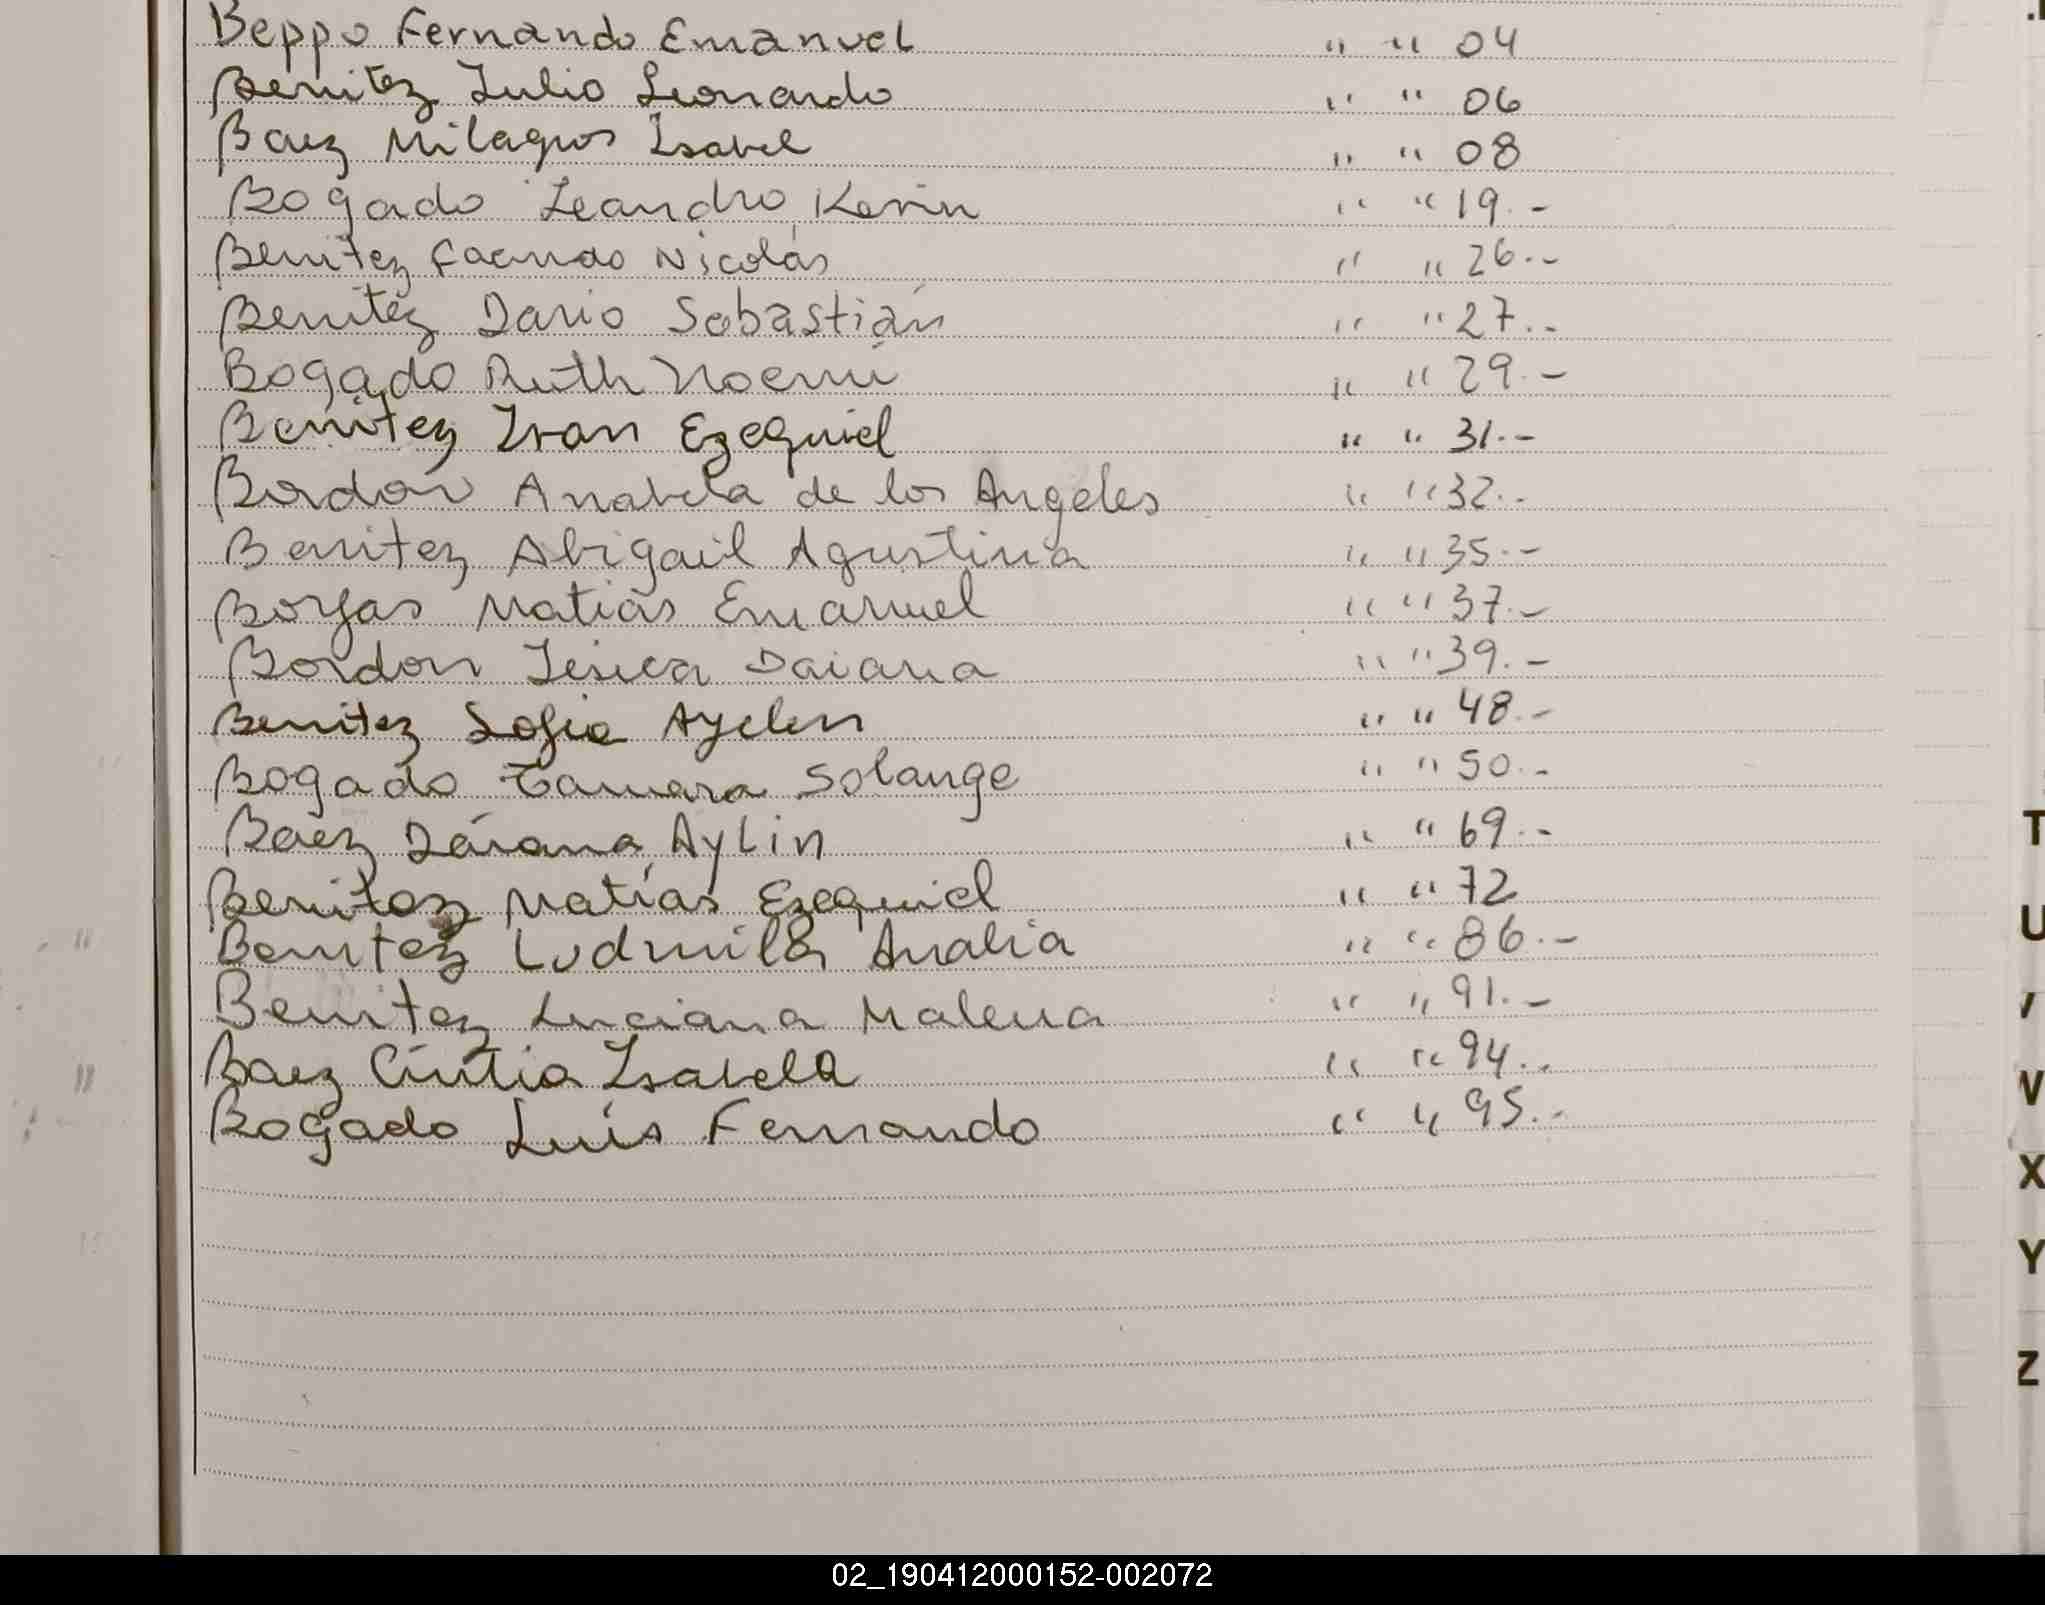 Beppo Fernando Emanuel " " 04
Benitez Julio Leonardo " " 06
Baez Milagros Isabel " " 08
Bogado Leandro Kevin " " 19.-
Benitez Facundo Nicolás " " 26.-
Benitez Dario Sebastián " " 27.-
Bogado Ruth Noemí " " 29.-
Benitez Ivan Ezequiel " " 31.-
Bordon Anabela de los Angeles " " 32.-
Benitez Abigail Agustina " " 35.-
Borjas Matias Emanuel " " 37.-
Bordon Jesica Daiana " " 39.-
Benitez Sofia Ayelen " " 48.-
Bogado Tamara Solange " " 50.-
Baez Daiana Aylin " " 69.-
T
Benitez Matías Ezequiel " " 72
U
Benitez Ludmila Analia " " 86.-
Benitez Luciana Malena " " 91.-
V
Baez Cintia Isabela " " 94.-
W
Bogado Luis Fernando " " 95.-
X
Y
Z
02_190412000152-002072